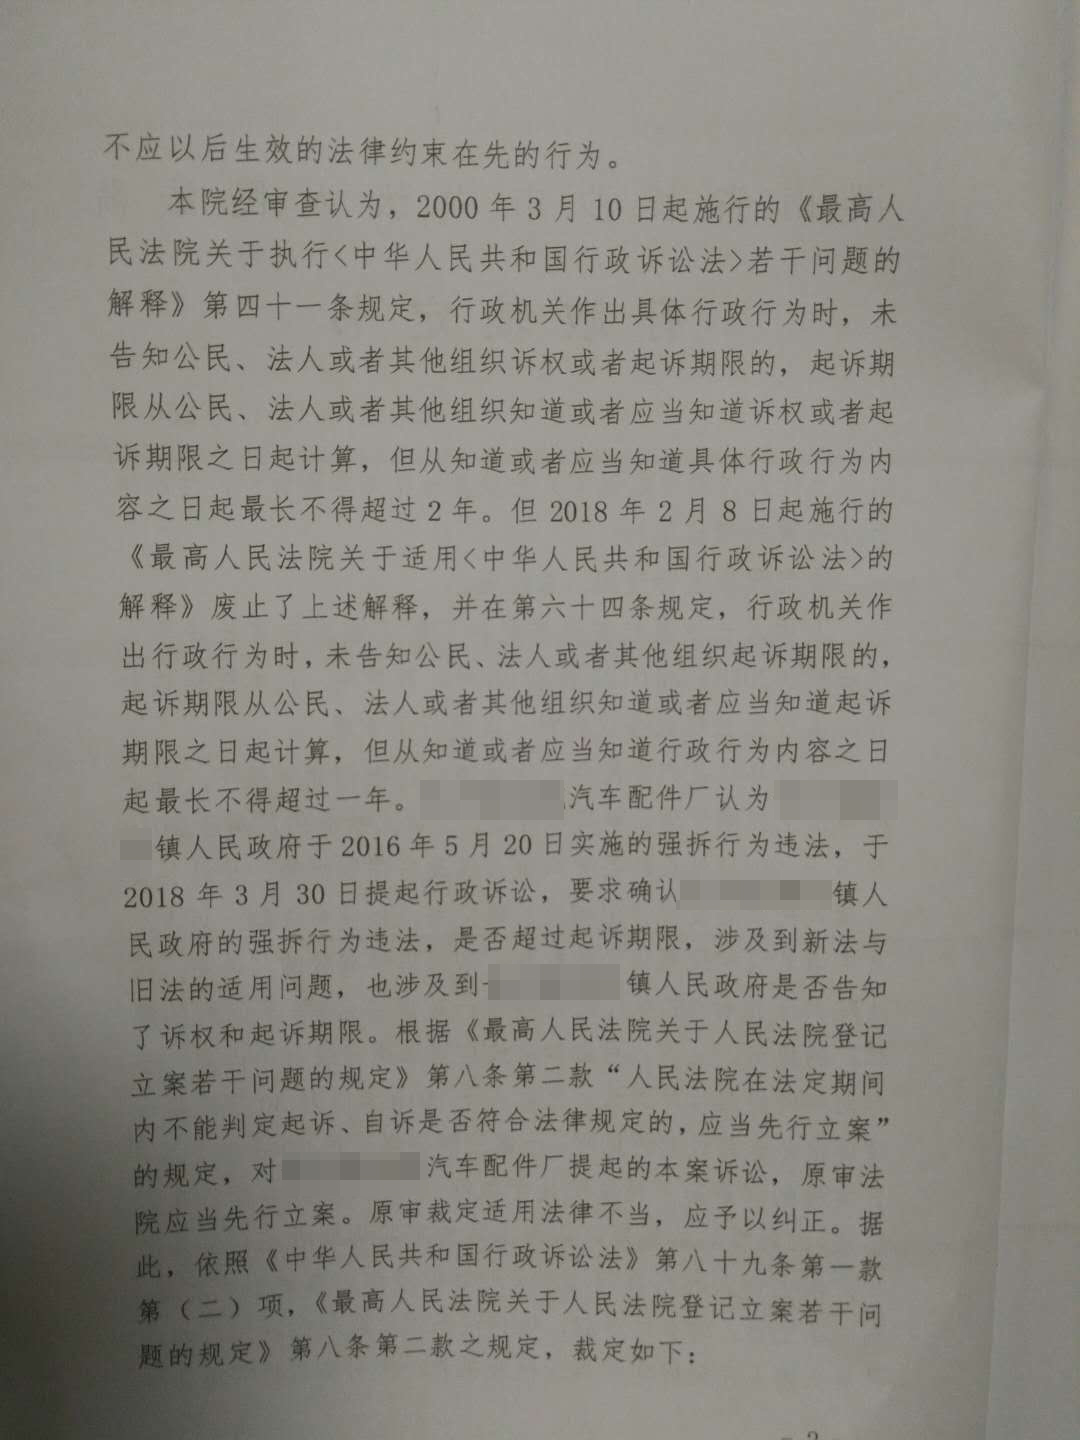 不应以后生效的法律约束在先的行为。
本院经审查认为，2000年3月10日起施行的《最高人
民法院关于执行<中华人民共和国行政诉讼法>若干问题的
解释》第四十一条规定，行政机关作出具体行政行为时，未
告知公民、法人或者其他组织诉权或者起诉期限的，起诉期
限从公民、法人或者其他组织知道或者应当知道诉权或者起
诉期限之日起计算，但从知道或者应当知道具体行政行为内
容之日起最长不得超过2年。但2018年2月8日起施行的
《最高人民法院关于适用<中华人民共和国行政诉讼法>的
解释》废止了上述解释，并在第六十四条规定，行政机关作
出行政行为时，未告知公民、法人或者其他组织起诉期限的，
起诉期限从公民、法人或者其他组织知道或者应当知道起诉
期限之日起计算，但从知道或者应当知道行政行为内容之日
起最长不得超过一年。汽车配件厂认为
镇人民政府于2016年5月20日实施的强拆行为违法，于
2018年3月30日提起行政诉讼，要求确认镇人
民政府的强拆行为违法，是否超过起诉期限，涉及到新法与
旧法的适用问题，也涉及到镇人民政府是否告知
了诉权和起诉期限。根据《最高人民法院关于人民法院登记
立案若干问题的规定》第八条第二款“人民法院在法定期间
内不能判定起诉、自诉是否符合法律规定的，应当先行立案”
的规定，对汽车配件厂提起的本案诉讼，原审法
院应当先行立案。原审裁定适用法律不当，应予以纠正。据
此，依照《中华人民共和国行政诉讼法》第八十九条第一款
第（二）项，《最高人民法院关于人民法院登记立案若干问
题的规定》第八条第二款之规定，裁定如下：